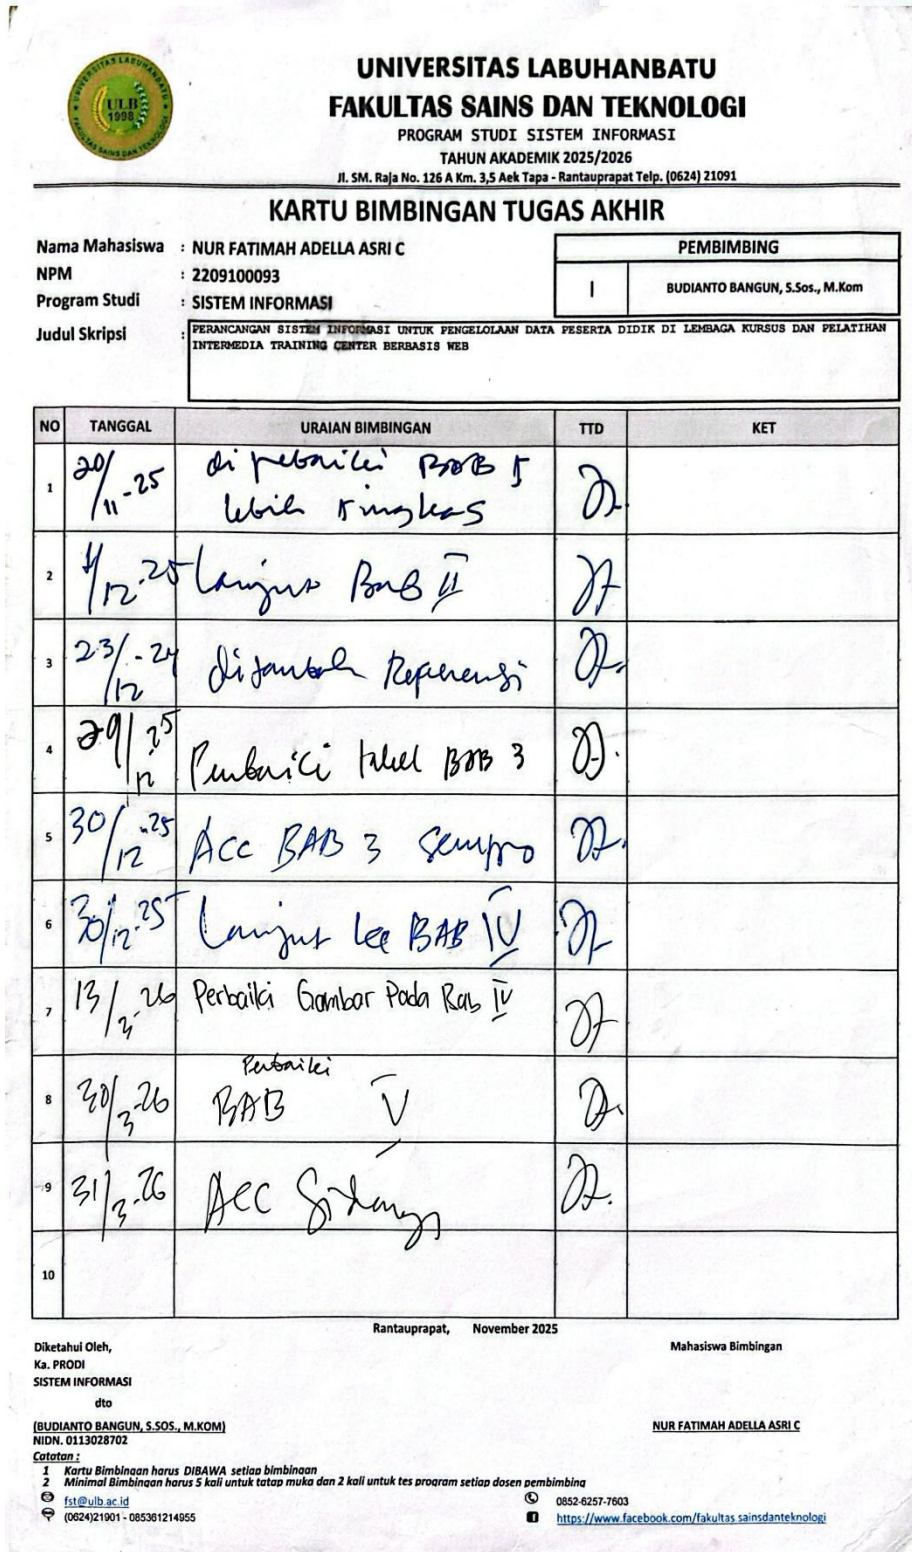 UNIVERSITAS LABUHANBATU
FAKULTAS SAINS DAN TEKNOLOGI
PROGRAM STUDI SISTEM INFORMASI
TAHUN AKADEMIK 2025/2026
Jl. SM. Raja No. 126 A Km. 3,5 Aek Tapa - Rantauprapat Telp. (0624) 21091
UNIVERSITAS LABUHANBATU
ULB
1998
FAKULTAS SAINS DAN TEKNOLOGI
KARTU BIMBINGAN TUGAS AKHIR
Nama Mahasiswa : NUR FATIMAH ADELLA ASRI C
NPM : 2209100093
Program Studi : SISTEM INFORMASI
PEMBIMBING
I BUDIANTO BANGUN, S.Sos., M.Kom
Judul Skripsi : PERANCANGAN SISTEM INFORMASI UNTUK PENGELOLAAN DATA PESERTA DIDIK DI LEMBAGA KURSUS DAN PELATIHAN
INTERMEDIA TRAINING CENTER BERBASIS WEB
NO TANGGAL URAIAN BIMBINGAN TTD KET
1 20/11-25 di pebaiki BAB I
lebih ringkas
2 /12-25 Lanjut Bab II
3 23/12-24 ditambah Referensi
4 29/12-25 Perbaiki tabel BAB 3
5 30/12-25 ACC BAB 3 Sempro
6 30/12-25 Lanjut ke BAB IV
7 13/3-26 Perbaiki Gambar Pada Bab IV
8 30/3-26 Perbaiki
BAB V
9 31/3-26 ACC Sidang
10
Rantauprapat, November 2025
Diketahui Oleh,
Ka. PRODI
SISTEM INFORMASI
dto
(BUDIANTO BANGUN, S.SOS., M.KOM)
NIDN. 0113028702
Mahasiswa Bimbingan
NUR FATIMAH ADELLA ASRI C
Catatan :
1 Kartu Bimbingan harus DIBAWA setiap bimbingan
2 Minimal Bimbingan harus 5 kali untuk tatap muka dan 2 kali untuk tes program setiap dosen pembimbing
fst@ulb.ac.id
(0624)21901 - 085361214955
0852-6257-7603
https://www.facebook.com/fakultas.sainsdanteknologi